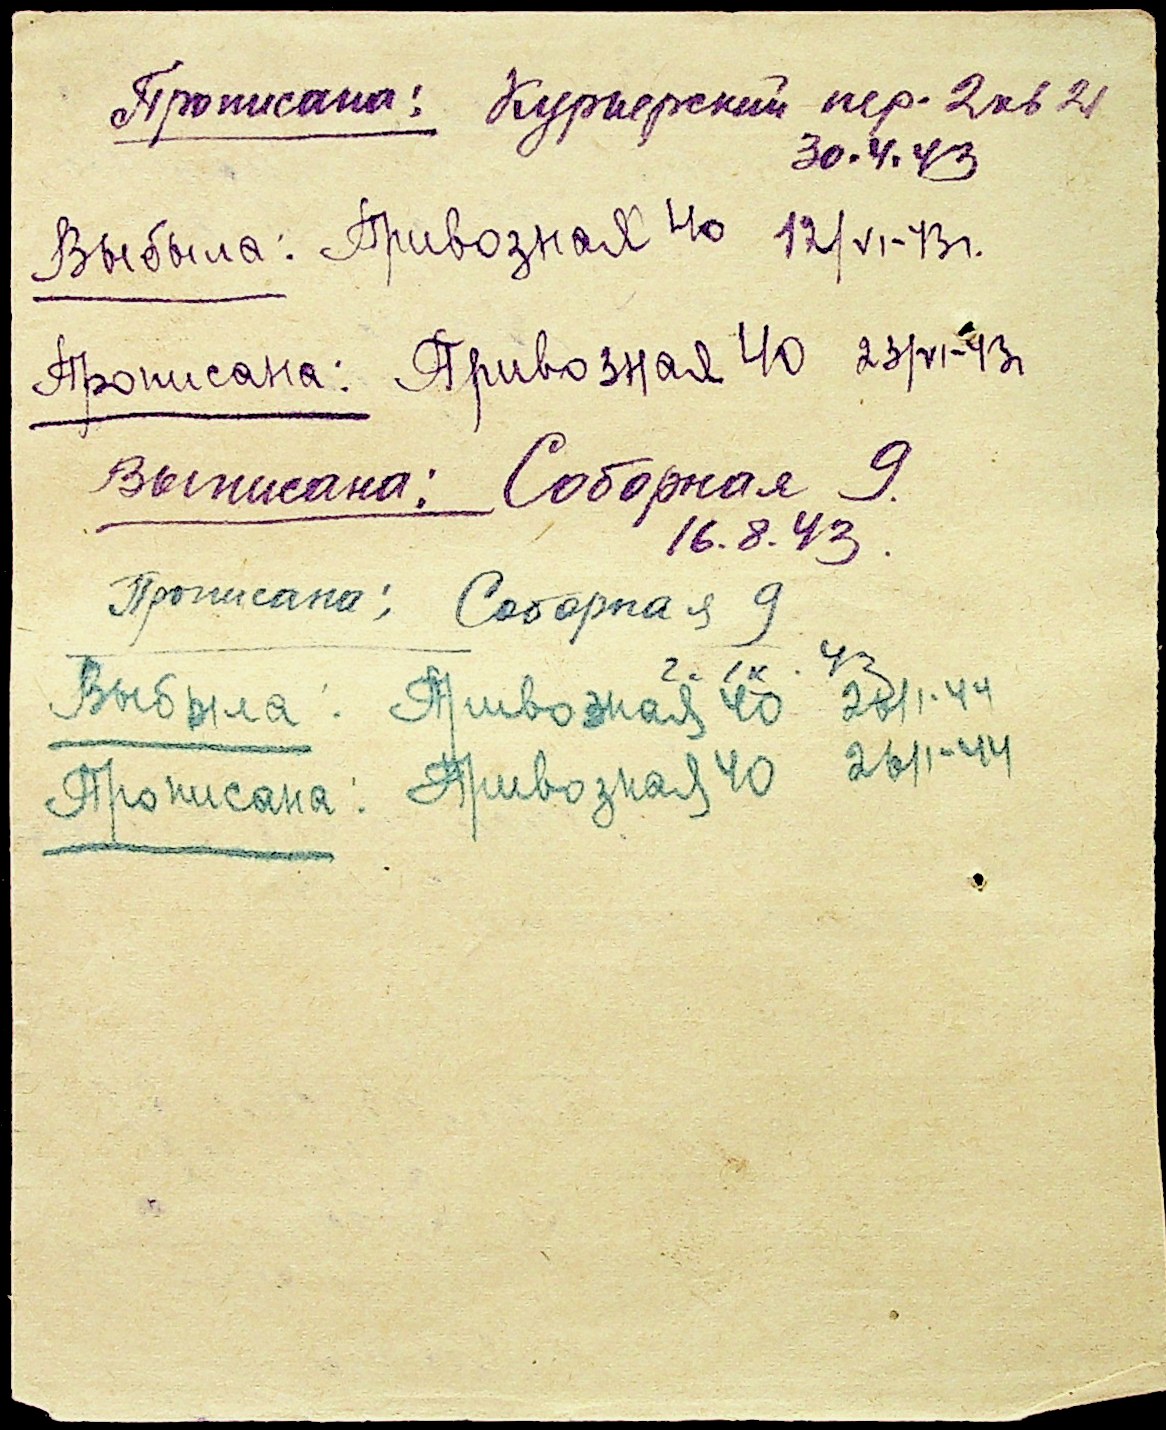 Прописана: Курьерский пер. 2 кв 21
30.4.43
Выбыла: Привозная 40 12/VI-43г.
Прописана: Привозная 40 23/VI-43г
Выписана: Соборная 9.
16.8.43.
Прописана: Соборная 9
2. IX. 43
Выбыла: Привозная 40 26/I-44
Прописана: Привозная 40 26/I-44